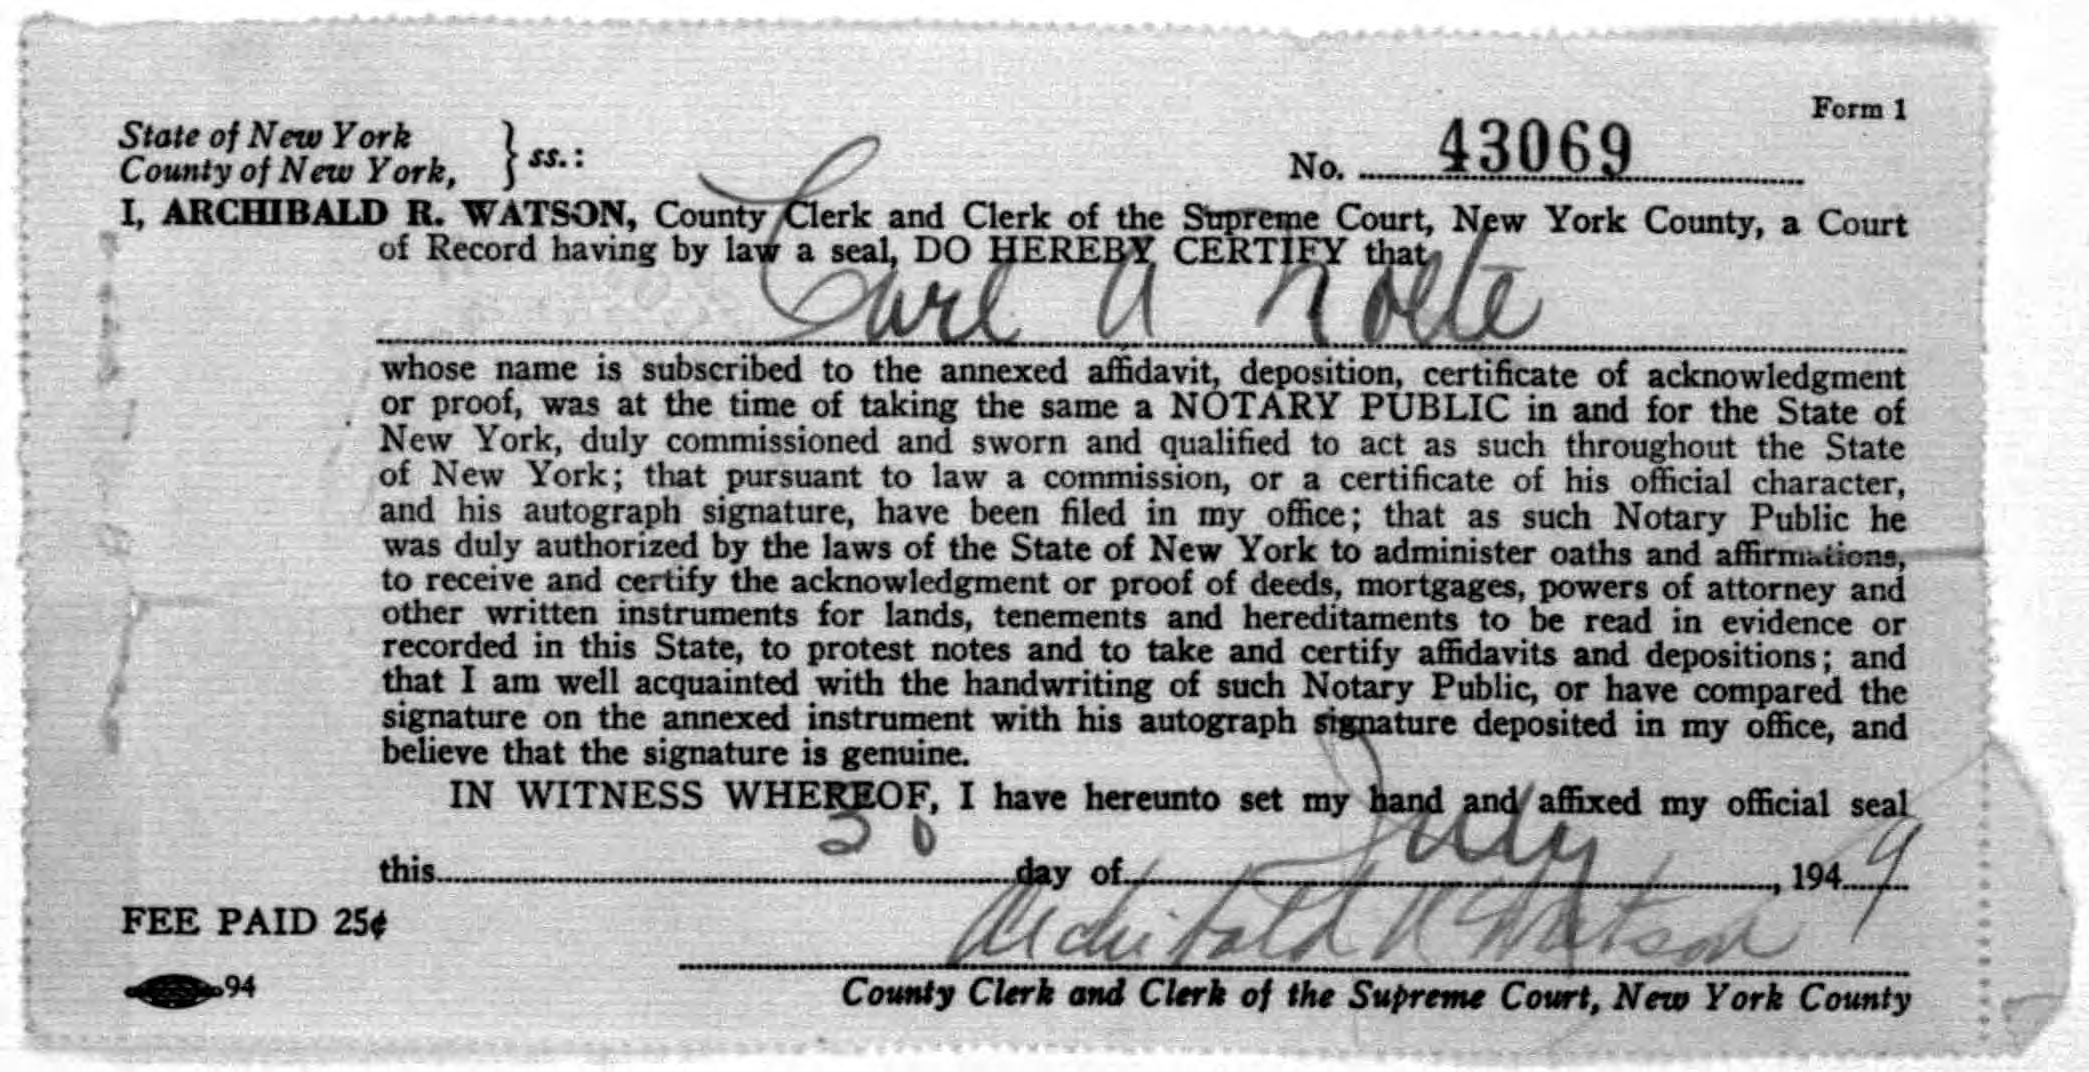 Form 1
State of New York
County of New York, } ss.:
No. 43069
I, ARCHIBALD R. WATSON, County Clerk and Clerk of the Supreme Court, New York County, a Court
of Record having by law a seal, DO HEREBY CERTIFY that
Carl A Nolte
whose name is subscribed to the annexed affidavit, deposition, certificate of acknowledgment
or proof, was at the time of taking the same a NOTARY PUBLIC in and for the State of
New York, duly commissioned and sworn and qualified to act as such throughout the State
of New York; that pursuant to law a commission, or a certificate of his official character,
and his autograph signature, have been filed in my office; that as such Notary Public he
was duly authorized by the laws of the State of New York to administer oaths and affirmations,
to receive and certify the acknowledgment or proof of deeds, mortgages, powers of attorney and
other written instruments for lands, tenements and hereditaments to be read in evidence or
recorded in this State, to protest notes and to take and certify affidavits and depositions; and
that I am well acquainted with the handwriting of such Notary Public, or have compared the
signature on the annexed instrument with his autograph signature deposited in my office, and
believe that the signature is genuine.
IN WITNESS WHEREOF, I have hereunto set my hand and affixed my official seal
this 30 day of July, 1949
FEE PAID 25¢
Archibald R Watson
94
County Clerk and Clerk of the Supreme Court, New York County